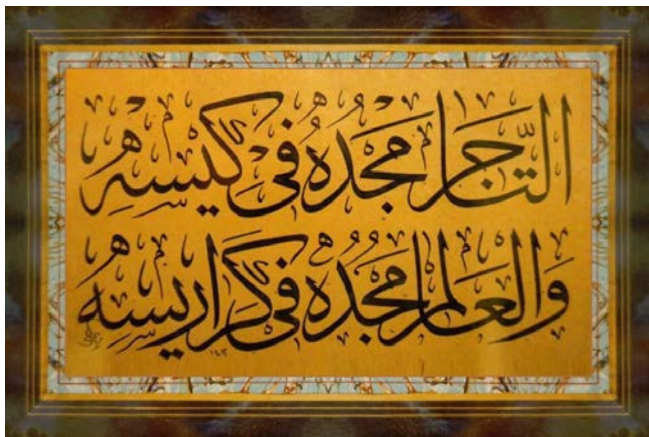 التّاجر مَجْدُهُ فى كَيْسِهِ
وَالعَالم مَجْدُهُ فى كَرَاريسِهِ